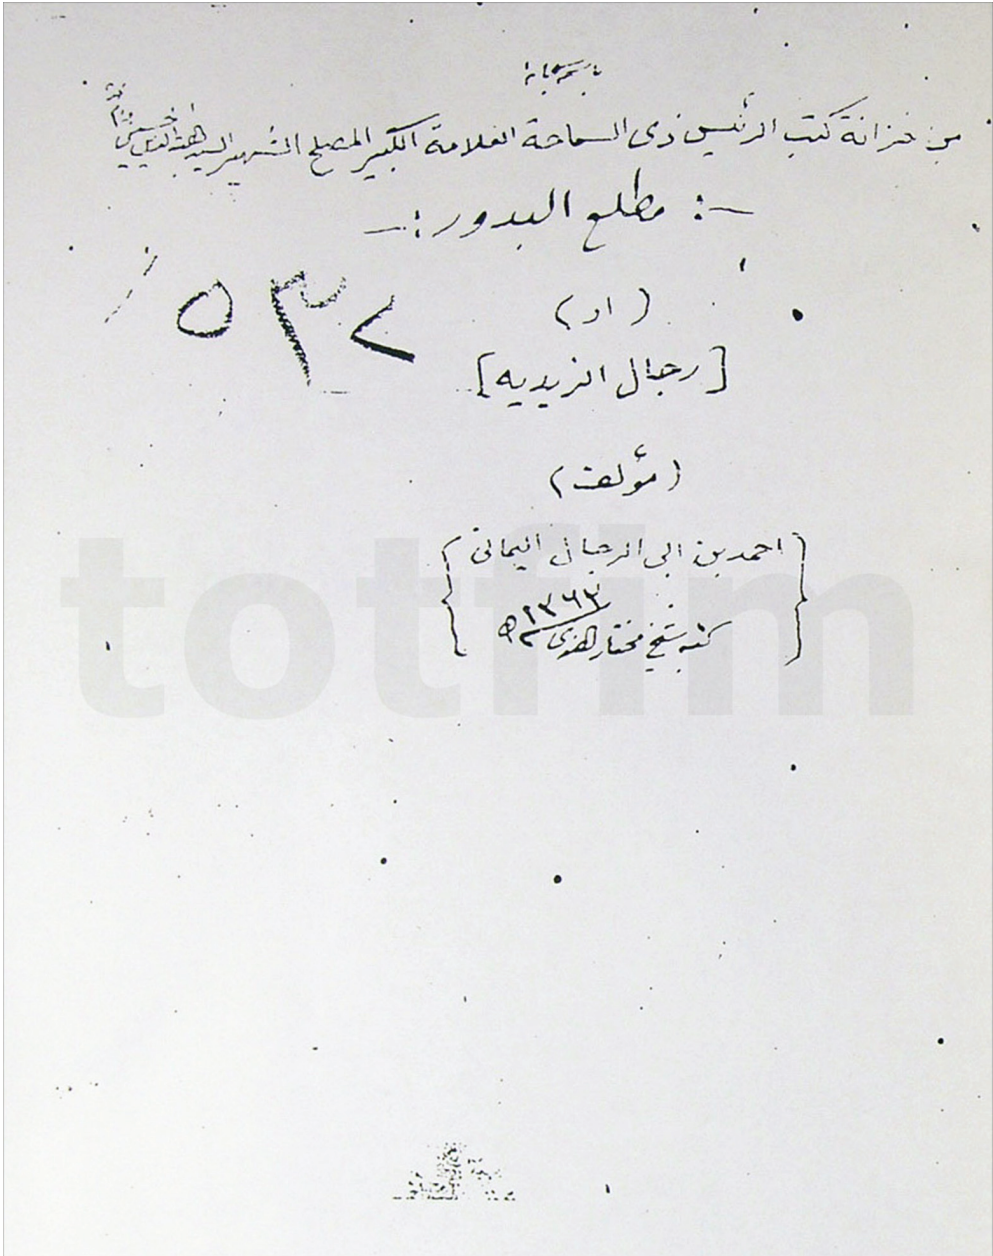 باسمه تعالى
من خزانة كتب الرئيس ذى السماحة العلامة الكبير المصلح الشهير السيد هبة الدين الحسينى
-: مطلع البدور :-
(او)
٥٣٧
[رجال الزيديه]
(مؤلفه)
{احمد بن ابى الرجال اليمانى
كتبه شيخ مختار ١٣٦٣ ه}
totfim